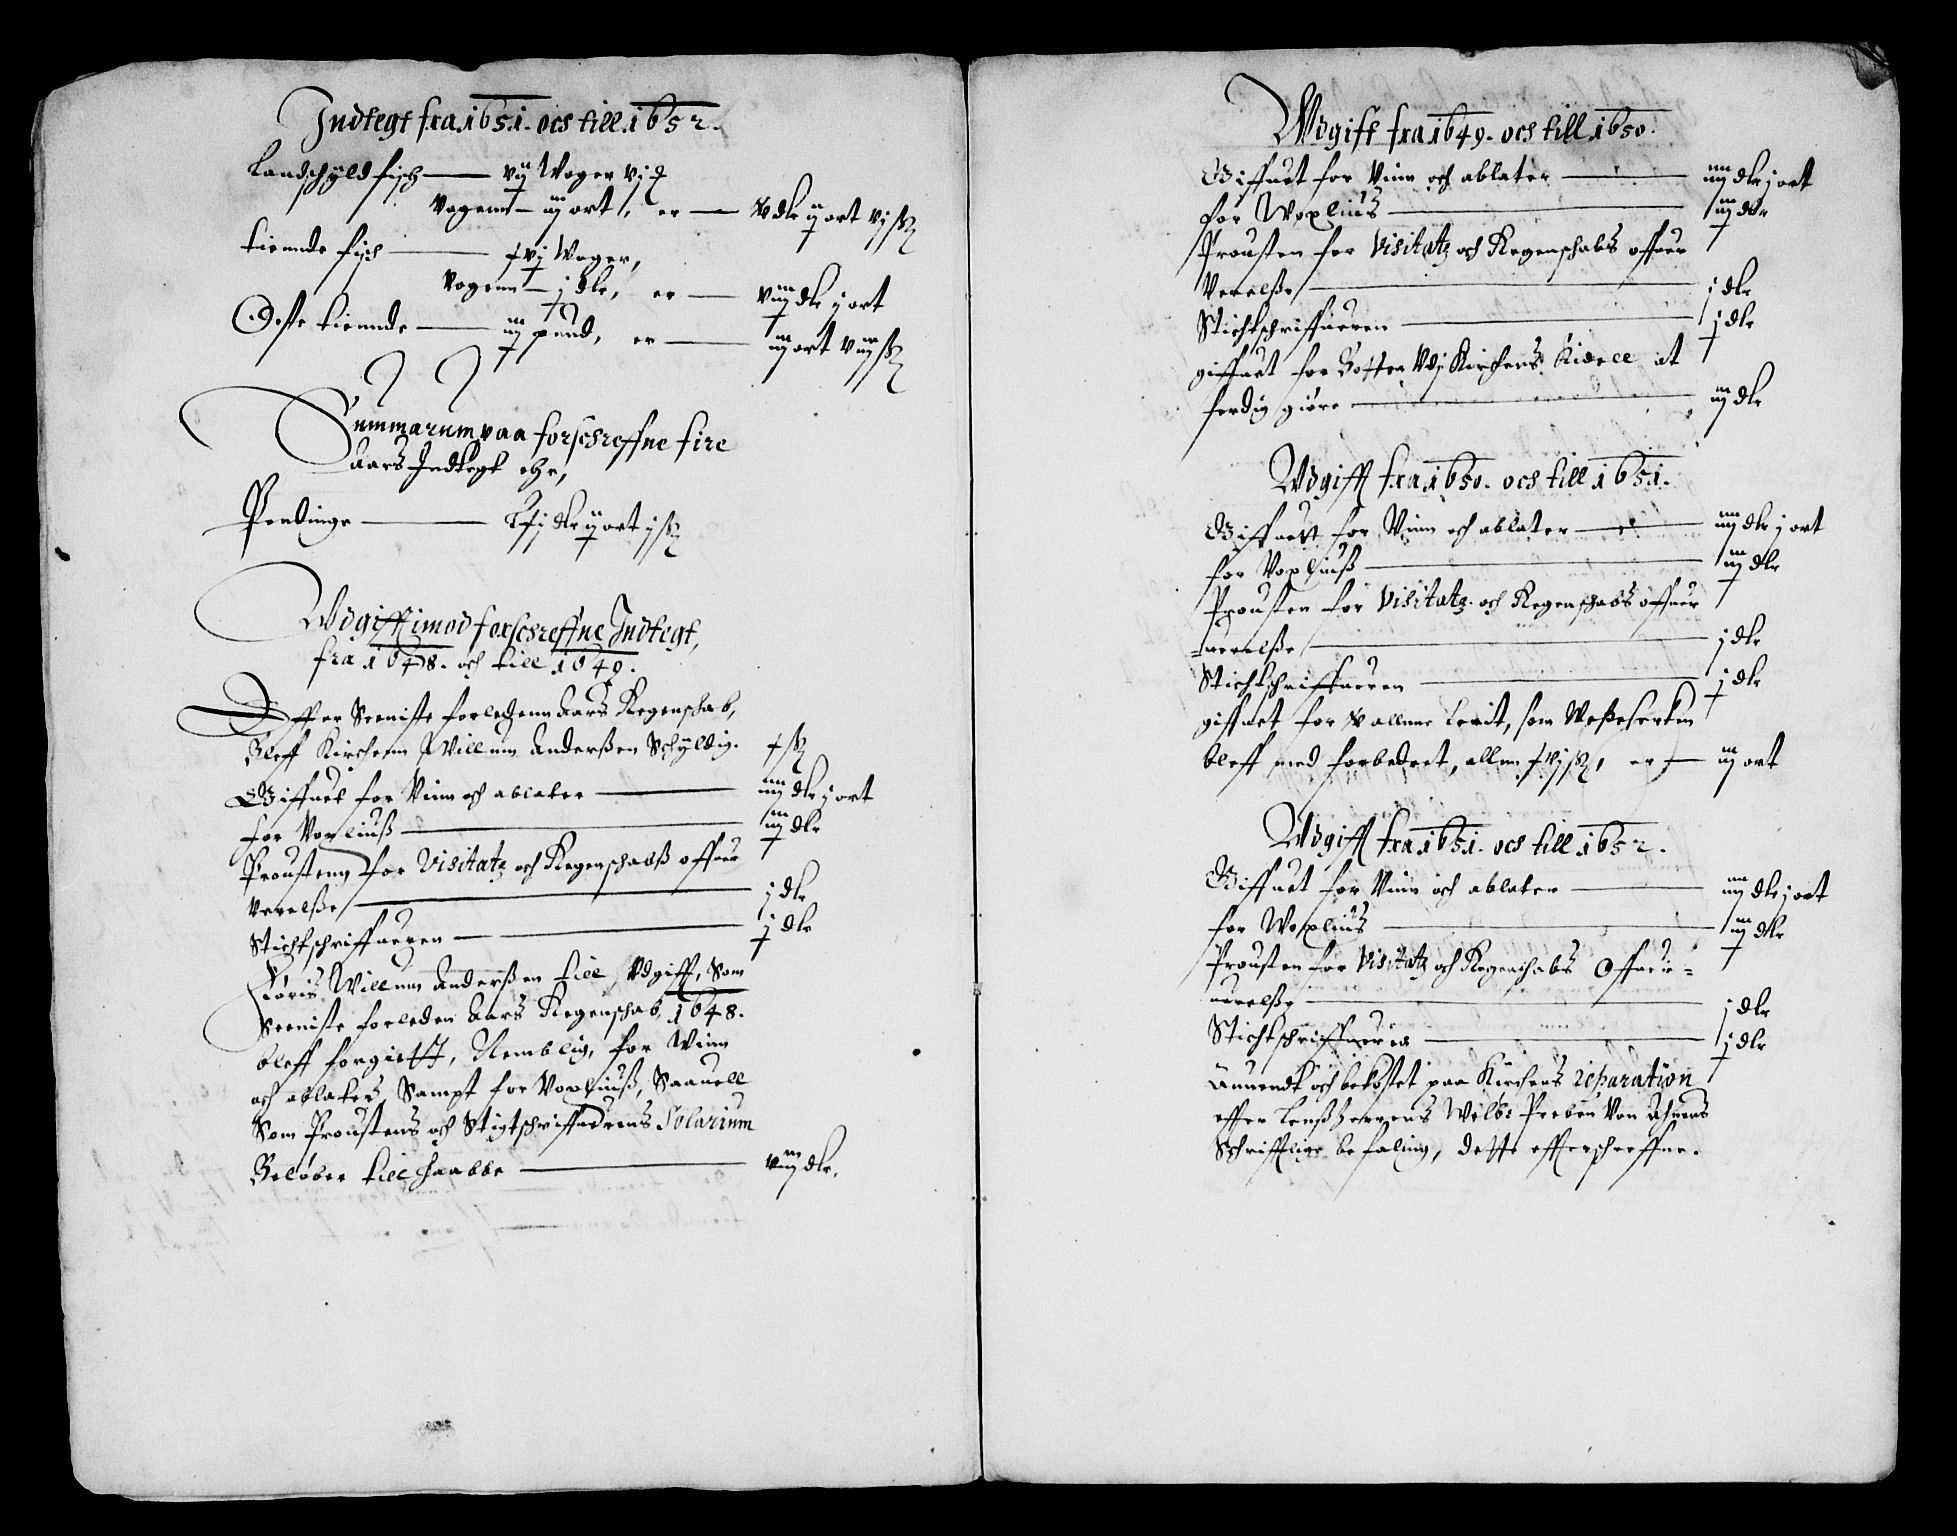 Indtegt fra 1651. och till 1652.
Landschÿld fisch — vij Woger vj
Vogenn — iij ort, er — xv dlr ij ort vj ß
tiennde fisch — xvj Woger,
Vogenn — j dlr, er — viij dlr j ort
Oste tiennde — iij pund, er — iij ort viij ß
Summarum paa forschreffne fire
Aars Indtegt ehr,
Pendinge — dlr ij ort j ß
Wdgifft imod forschreffne Indtegt,
fra 1648. och till 1649.
Effter Seeniste forledenn Aars Regenschab,
Bleff Kirchenn Willum Anderßen Schÿldig. x ß
Giffuet for Vinn och ablater — iiij dlr j ort
for Voxliuß — iij dlr
Proustenn for Visitatz och Regenschabß offuer
verelße — j dlr
Stichtschriffueren — j dlr
Føris Willum Anderßen till Vdgifft, Som
Seeniste forleden Aars Regenschab 1648.
bleff forgiett, Nemblig, for Winn
och ablater, Sampt for Voxliuß, Saauell
Som Proustens och Stigtschriffuerens Solarium
Beløber till haabbe — viij dlr.
Wdgift fra 1649. och till 1650.
Giffuet for Vinn och ablater — iiij dlr j ort
for Woxlius — iij dlr
Prousten for Visitatz och Regenschabs offuer
Verelße — j dlr
Stichtschriffueren — j dlr
giffuet for Botten Vdj Kirchens Kieell at
ferdig giøre — iij dlr
Wdgifft fra 1650. och till 1651.
Giffuett for Vinn och ablater — iiij dlr j ort
for Voxliuß — iij dlr
Prousten for Visitatz och Regenschabs offuer
uerelße — j dlr
Stichtschriffueren — j dlr
giffuet for allnne Lerit, som Meßeserken
bleff med forbedret, allen xvj ß, er — iij ort
Wdgifft fra 1651. och till 1652.
Giffuet for Vinn och ablater — iiij dlr j ort
for Woxlius — iij dlr
Prousten for Visitatz och Regenschabs Offuer=
uerelße — j dlr
Stichtschriffueren — j dlr
Anuendt och bekostet paa Kirchens reparation
effter Lenßherrens Welb: Preben Von Ahnens
Schrifftlige befaling, dette effterschreffne.